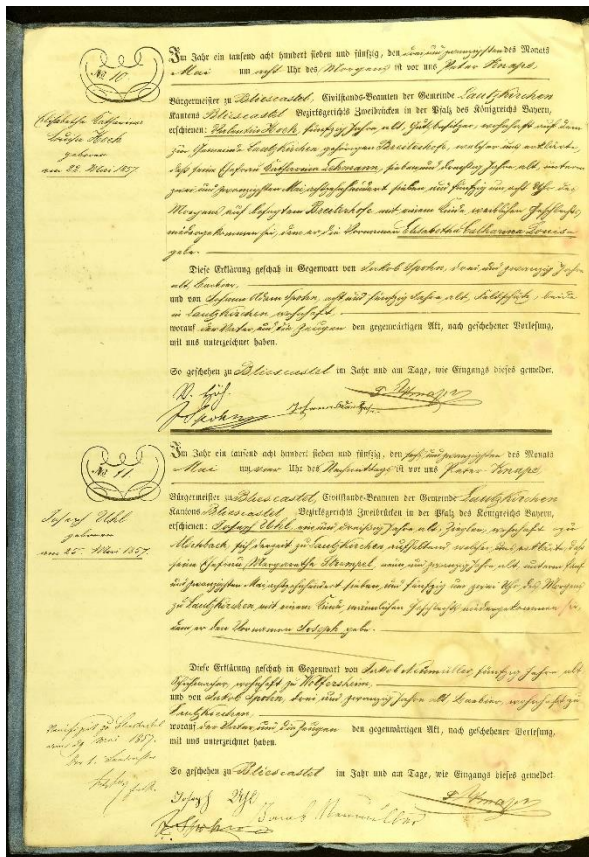 No 10.
Elisabetha Catharina
Louisa Hock
geboren
am 22. Mai 1857
Im Jahr ein tausend acht hundert sieben und fünfzig, den drei und zwanzigsten des Monats
Mai um acht Uhr des Morgens ist vor uns Peter Knapp,
Bürgermeister zu Bliescastel, Civilstands-Beamten der Gemeinde Lautzkirchen
Kantons Bliescastel Bezirksgerichts Zweibrücken in der Pfalz des Königreichs Bayern,
erschienen: Valentin Hock, fünfzig Jahre alt, Gutsbesitzer, wohnhaft auf dem
zur Gemeinde Lautzkirchen gehörigen, welcher uns erklärte,
daß seine Ehefrau Katharina Lehmann, sieben und dreißig Jahre alt, unterm
zwei und zwanzigsten Mai achtzehnhundert sieben und fünfzig um acht Uhr des
Morgens, auf besagtem mit einem Kinde weiblichen Geschlechts
niedergekommen sei, dem er die Vornamen Elisabetha Catharina Louisa
gebe.
Diese Erklärung geschah in Gegenwart von Jakob Spohn, drei und zwanzig Jahre
alt,
und von Johann Adam Spohn, acht und fünfzig Jahre alt, Feldschütz, beide
in Lautzkirchen wohnhaft,
worauf der Vater und die Zeugen den gegenwärtigen Akt, nach geschehener Verlesung,
mit uns unterzeichnet haben.
So geschehen zu Bliescastel im Jahr und am Tage, wie Eingangs dieses gemeldet.
J Spohn
P. Knapp
No 11.
Joseph Uhl
geboren
am 25. Mai 1857.
Im Jahr ein tausend acht hundert sieben und fünfzig, den sechs und zwanzigsten des Monats
Mai um vier Uhr des Nachmittags ist vor uns Peter Knapp,
Bürgermeister zu Bliescastel, Civilstands-Beamten der Gemeinde Lautzkirchen
Kantons Bliescastel, Bezirksgerichts Zweibrücken in der Pfalz des Königreichs Bayern,
erschienen: Joseph Uhl, ein und dreißig Jahre alt, Ziegler, wohnhaft zu
Mittelbach, sich derzeit zu Lautzkirchen aufhaltend welcher uns erklärte, daß
seine Ehefrau Margaretha Stempel, neun und zwanzig Jahre alt, unterm fünf
und zwanzigsten Mai achtzehnhundert sieben und fünfzig um zwei Uhr des Morgens
zu Lautzkirchen, mit einem Kinde männlichen Geschlechts niedergekommen sei,
dem er den Vornamen Joseph gebe.
Diese Erklärung geschah in Gegenwart von Jakob Neumüller, fünfzig Jahre alt
wohnhaft zu Wolfersheim,
und von Jakob Spohn, drei und zwanzig Jahre alt, wohnhaft zu
Lautzkirchen,
worauf der Vater und die Zeugen den gegenwärtigen Akt, nach geschehener Verlesung,
mit uns unterzeichnet haben.
So geschehen zu Bliescastel im Jahr und am Tage, wie Eingangs dieses gemeldet
Joseph Uhl
P. Knapp
J. Spohn Jacob Neumüller
Mai 1857.